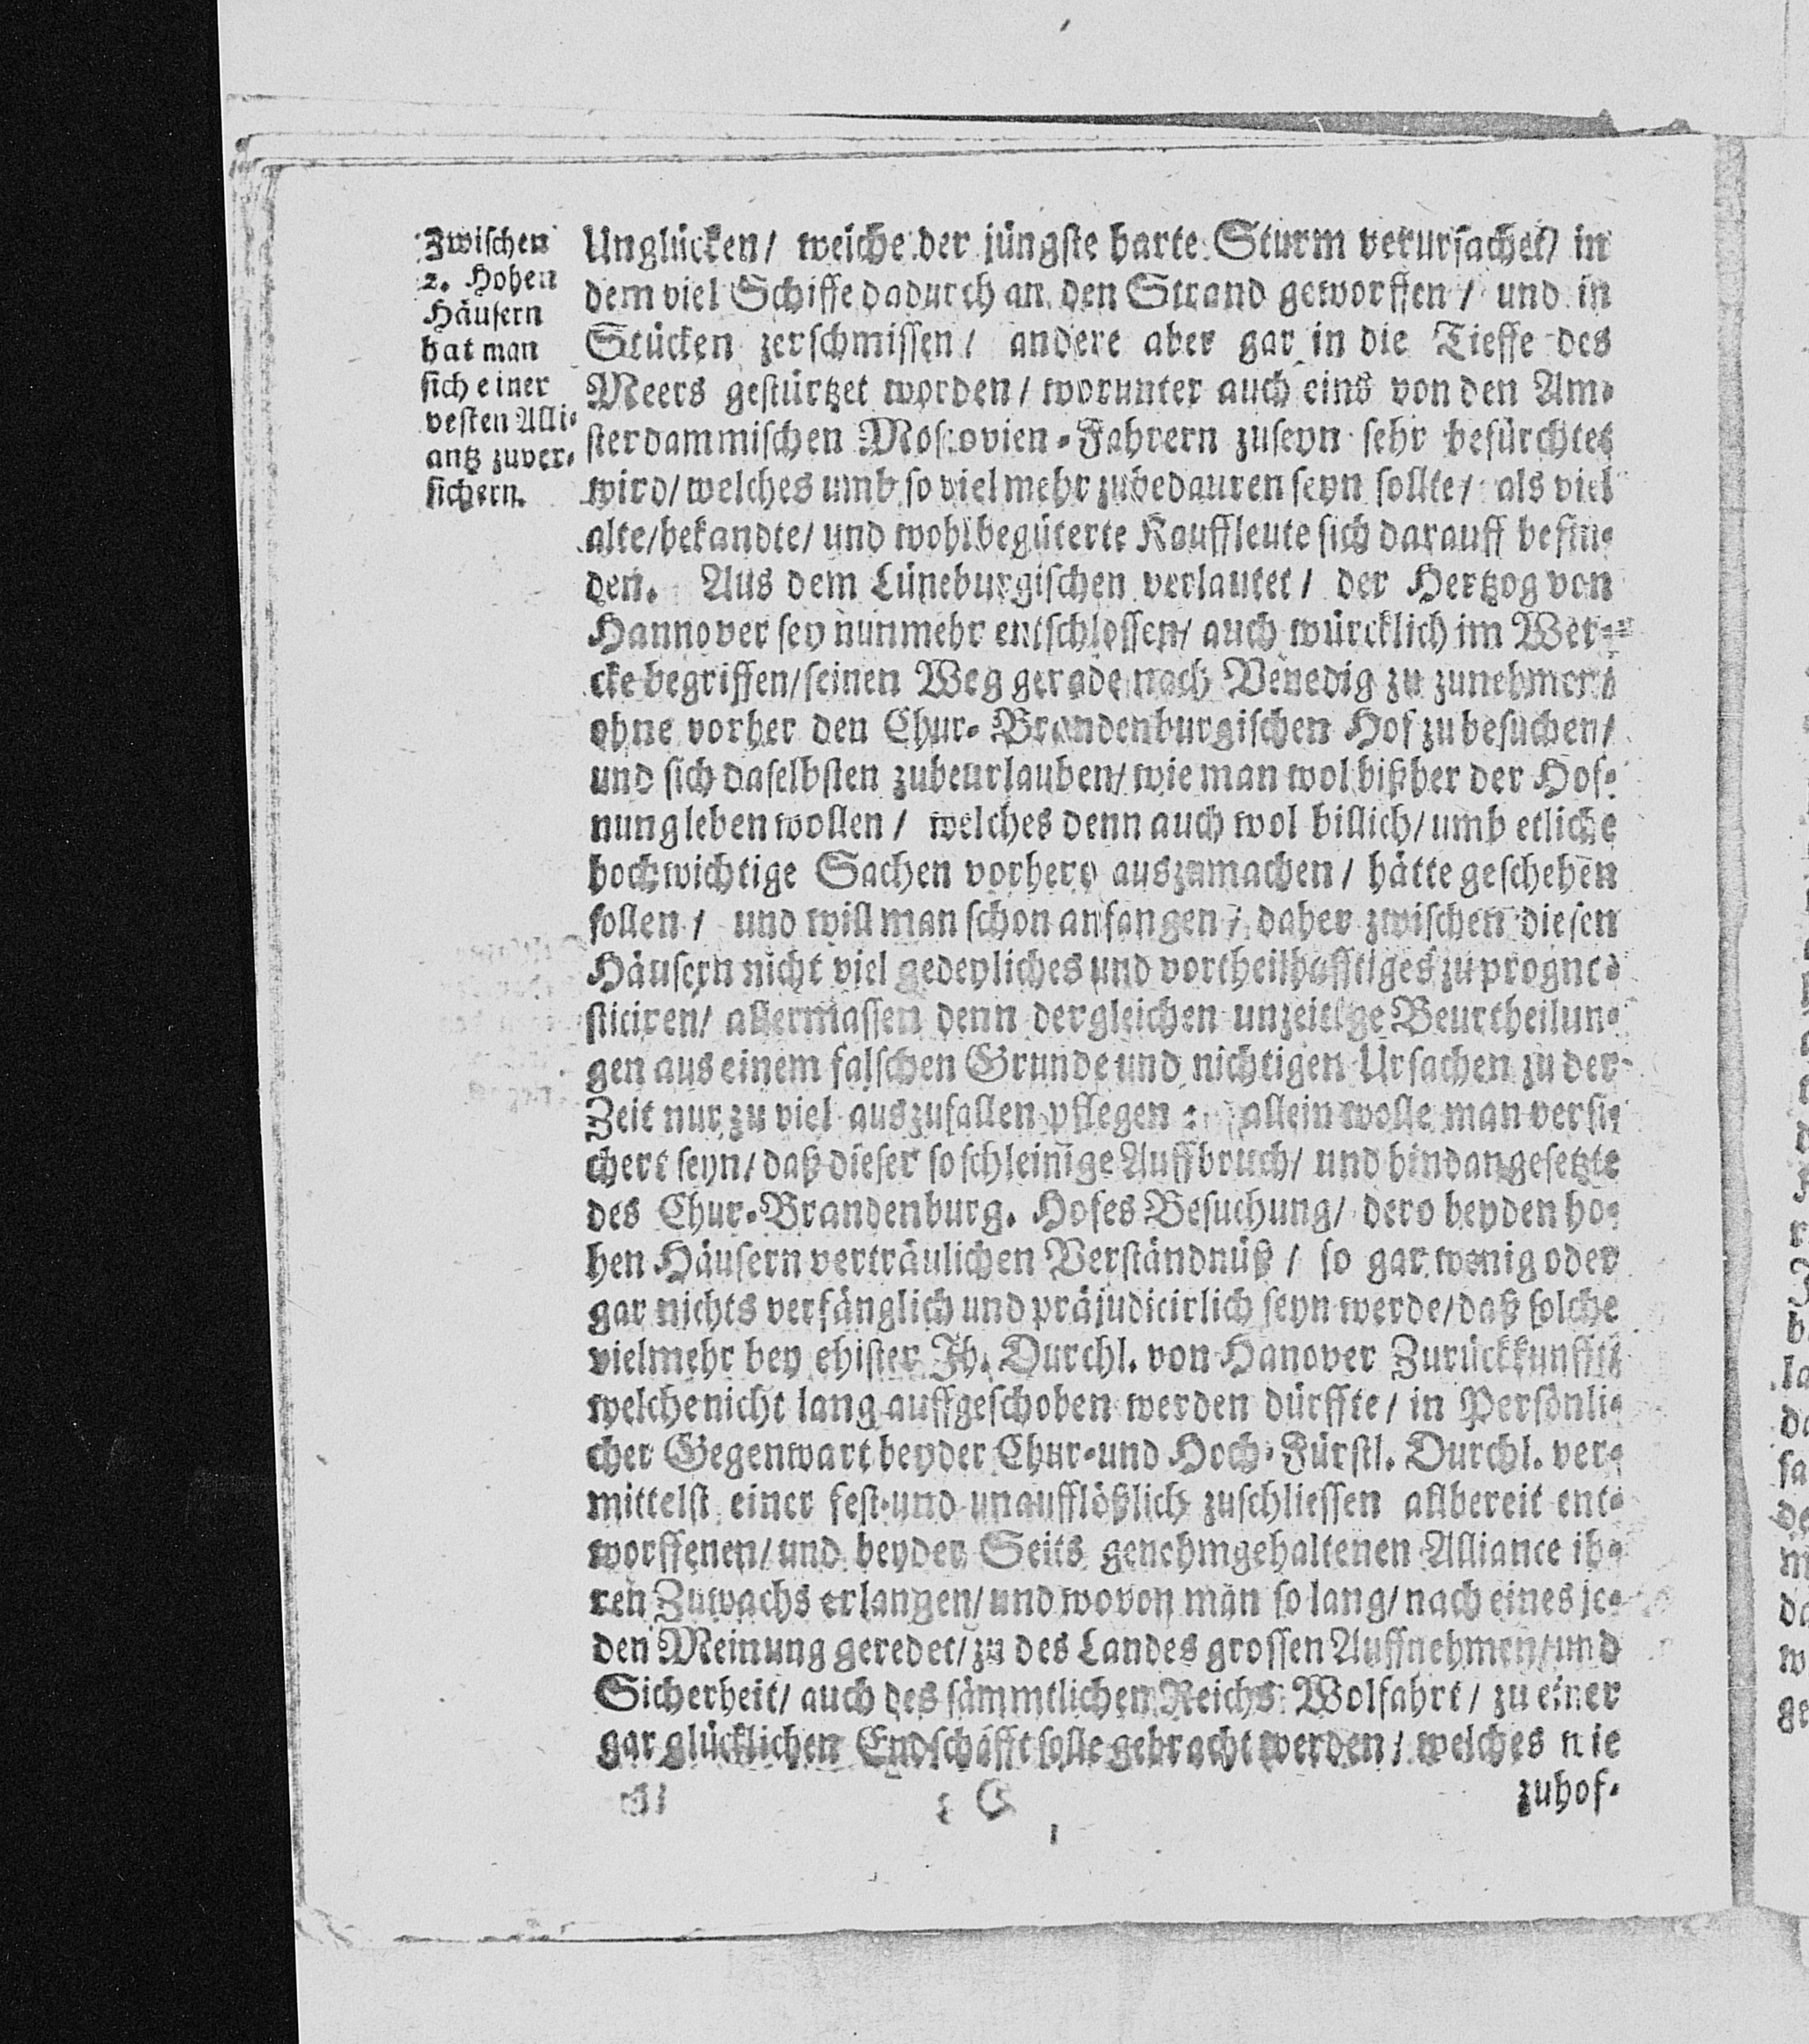 Zwischen
2. Hohen
Häusern
hat man
sich einer
vesten Alli-
antz zuver-
sichern.
Unglücken/ welche der jüngste harte Sturm verursachet/ in
dem viel Schiffe dadurch an den Strand geworffen/ und in
Stücken zerschmissen/ andere aber gar in die Tieffe des
Meers gestürtzet worden/ worunter auch eins von den Am-
sterdammischen Moscovien-Fahrern zuseyn sehr befürchtet
wird/ welches umb so viel mehr zubedauren seyn sollte/ als viel
alte/ bekandte/ und wohlbegüterte Kauffleute sich darauff befin-
den. Aus dem Lüneburgischen verlautet/ der Hertzog von
Hannover sey nunmehr entschlossen/ auch würcklich im Wer-
cke begriffen/ seinen Weg gerade nach Venedig zu zunehmen/
ohne vorher den Chur-Brandenburgischen Hof zu besuchen/
und sich daselbsten zubeurlauben/ wie man wol bißher der Hof-
nung leben wollen/ welches denn auch wol billich/ umb etliche
hochwichtige Sachen vorhero auszumachen/ hätte geschehen
sollen/ und will man schon anfangen/ daher zwischen diesen
Häusern nicht viel gedeyliches und vortheilhafftiges zu progno-
sticiren/ allermassen denn dergleichen unzeitige Beurtheilun-
gen aus einem falschen Grunde und nichtigen Ursachen zu der
Zeit nur zu viel auszufallen pflegen: allein wolle man versi-
chert seyn/ daß dieser so schleinige Auffbruch/ und hindangesetzte
des Chur-Brandenburg. Hofes Besuchung/ dero beyden ho-
hen Häusern verträulichen Verständnüß/ so gar wenig oder
gar nichts verfänglich und präjudicirlich seyn werde/ daß solche
vielmehr bey ehister Jh. Durchl. von Hanover Zurückkunfft/
welche nicht lang auffgeschoben werden dürffte/ in Persönli-
cher Gegenwart beyder Chur-und Hoch-Fürstl. Durchl. ver-
mittelst einer fest-und unaufflößlich zuschliessen allbereit ent-
worffenen/ und beyder Seits genehmgehaltenen Alliance ih-
ren Zuwachs erlangen/ und wovon man so lang/ nach eines je-
den Meinung geredet/ zu des Landes grossen Auffnehmen/ und
Sicherheit/ auch des sämmtlichen Reichs Wolfahrt/ zu einer
gar glücklichen Endschafft solle gebracht werden/ welches nie
zuhof-